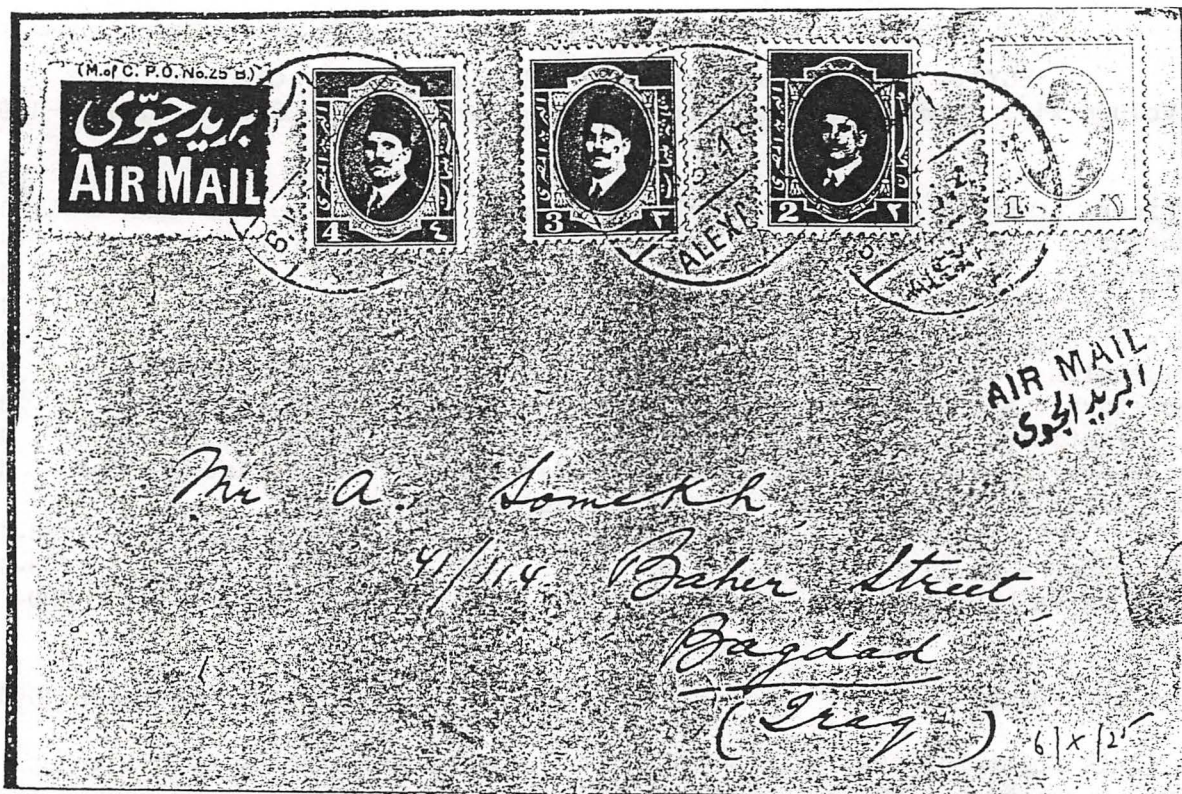 (M. of C. P.O. No. 25 B.)
بريد جوّى
AIR MAIL
4 ٤
3 ٣
2 ٢
1 ١
ALEX
AIR MAIL
البريد الجوى
Mr A. Somekh,
41/114 Baher Street,
Bagdad
(Iraq)
6/X/25